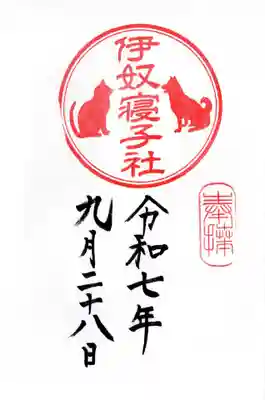 伊奴寝子社
奉拝
令和七年
九月二十八日